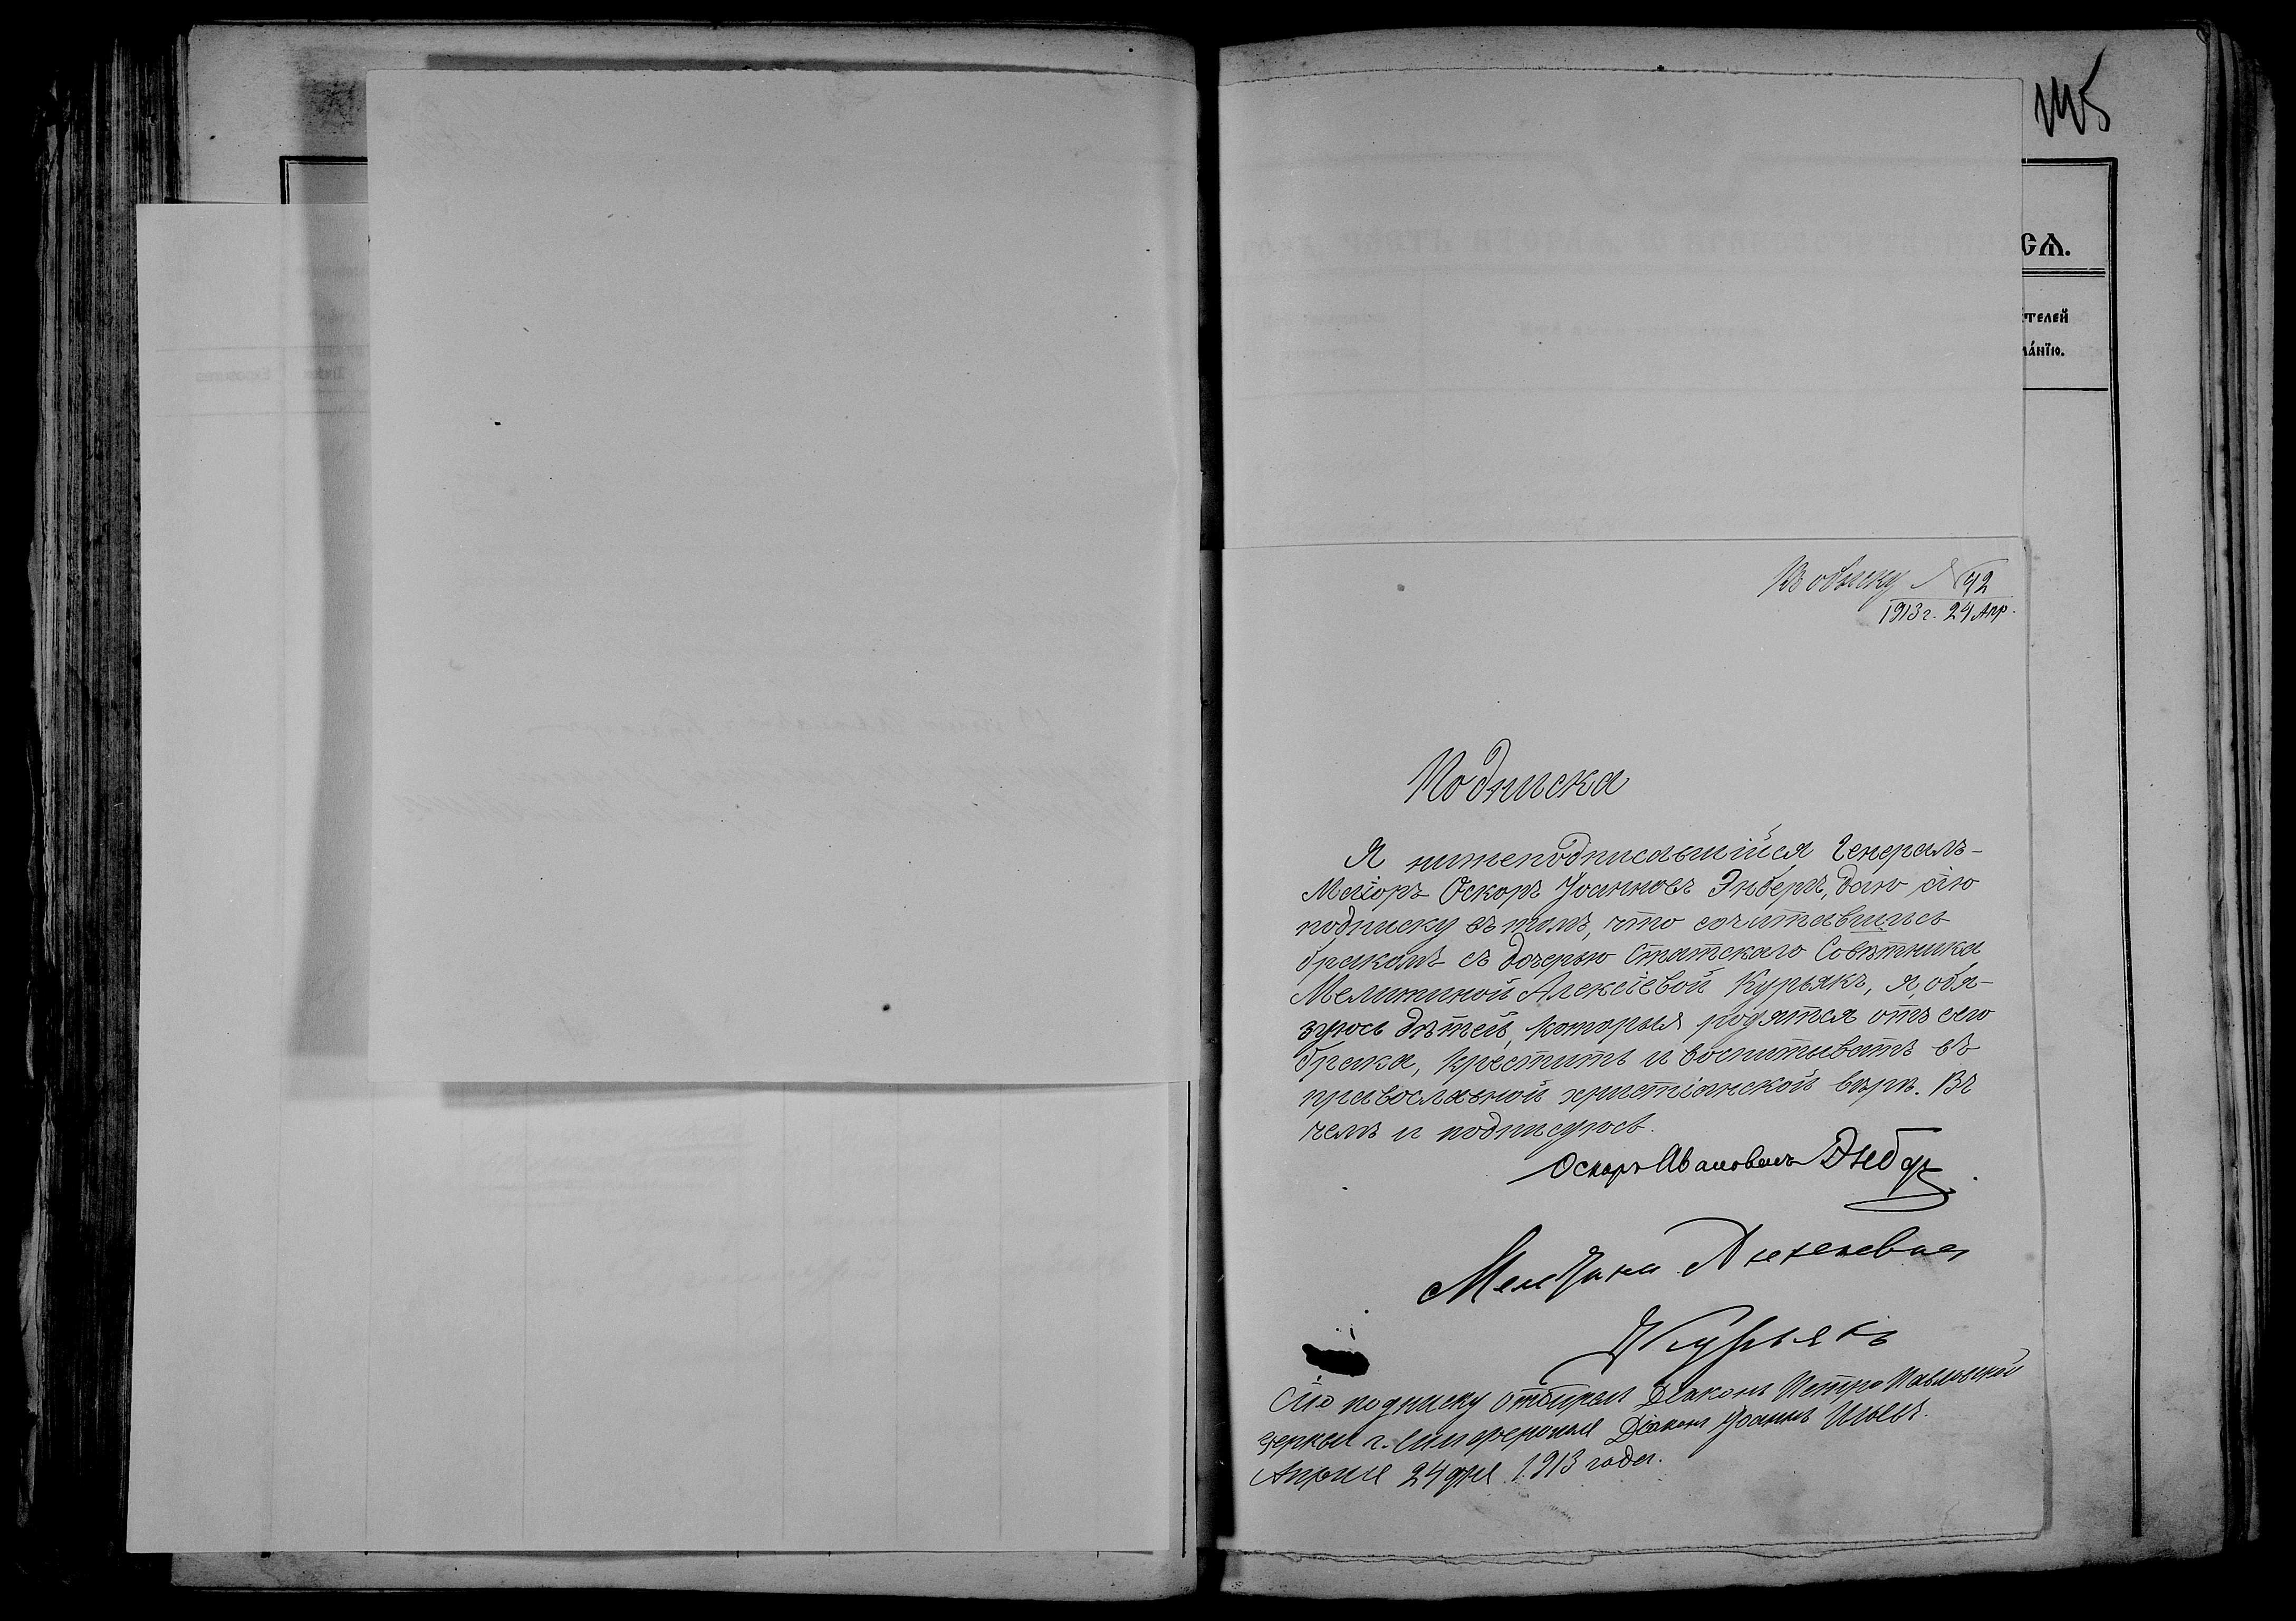 145
СѦ.
телей
ланїю.
Къ обыску № 92
1913 г. 24 Апр.
Подписка
Я нижеподписавшійся Генералъ-
Маіоръ Оскаръ Іоанновъ Энбергъ, даю сію
подписку въ томъ, что сочитавшись
бракомъ съ дочерью Статскаго Совѣтника
Мелитиной Алексіевой Курьякъ, я обя-
зуюсь дѣтей, которыя родятся отъ сего
брака, крестить и воспитывать въ
православной христіанской вѣрѣ. Въ
чемъ и подписуюсь.
Оскаръ Ивановичъ Энбергъ
Мелитина Алексеевна
Курьякъ
Сію подписку отбирал Діаконъ Петро Павловской
церкви г. Симферополя Діаконъ Іоаннъ
Апрѣля 24 дня 1913 года.